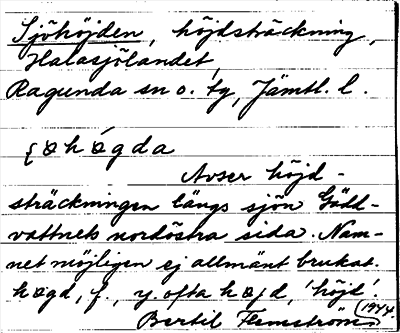 Sjöhöjden, höjdsträckning,
Halasjölandet,
Ragunda sn o. tg, Jämtl. l.
Avser höjd-
sträckningen längs sjön Gädd-
vattnets nordöstra sida. Nam-
net möjligen ej allmänt brukat.
högd, f., y. ofta höjd, 'höjd'.
Bertil Flemström
1944.